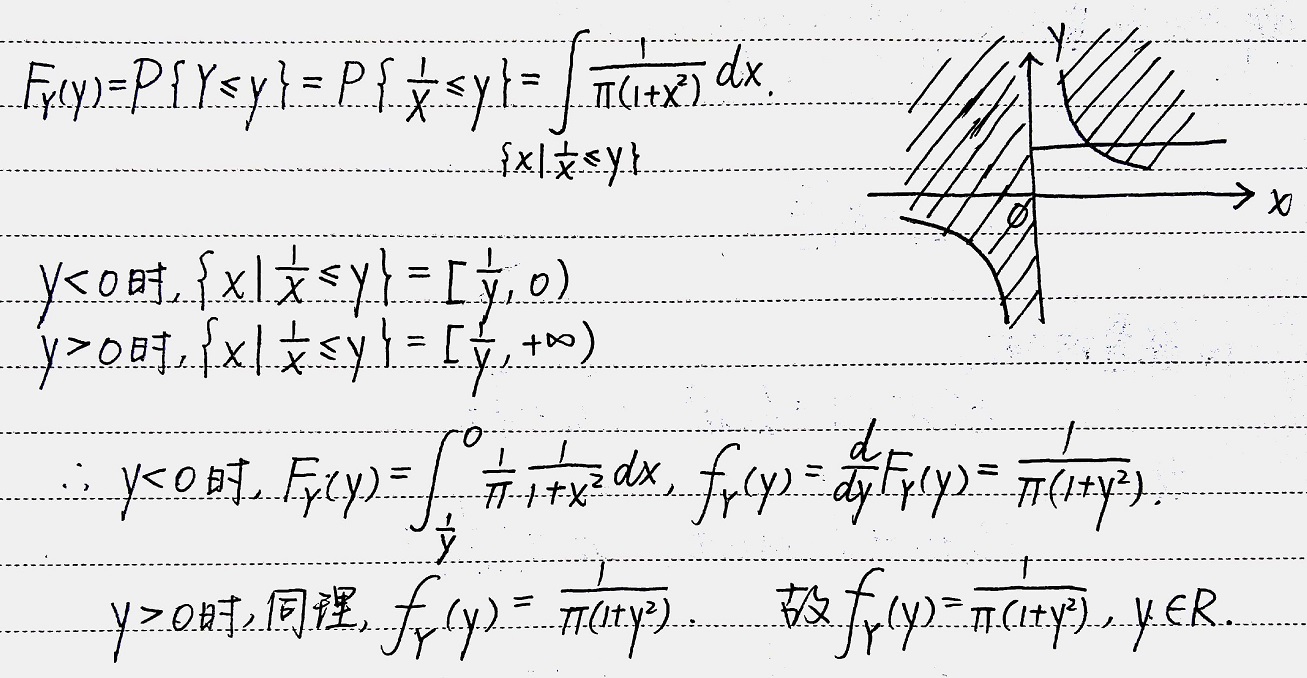 F_Y(y)=P{Y≤y}=P{1/X≤y}=∫_{x|1/x≤y} 1/(π(1+x²)) dx.
Y
x
O
y<0时,{x|1/x≤y}=[1/y,0)
y>0时,{x|1/x≤y}=[1/y,+∞)
∴ y<0时,F_Y(y)=∫_{1/y}^0 1/π 1/(1+x²) dx, f_Y(y)=d/dy F_Y(y)=1/(π(1+y²)).
y>0时,同理,f_Y(y)=1/(π(1+y²)). 故f_Y(y)=1/(π(1+y²)), y∈R.